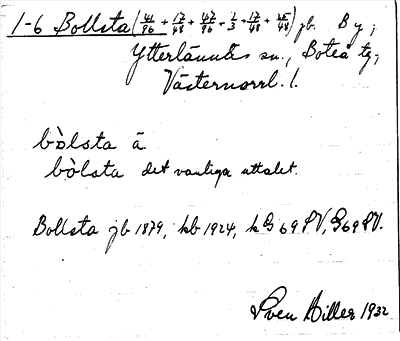 1-6 Bollsta (41/96 + 17/48 + 47/96 + 1/3 + 17/48 + 25/48) jb. By;
Ytterlännäs sn., Boteå tg,
Västernorrl. l.
bòlsta ä
bòlsta det vanliga uttalet.
Bollsta jb 1879, kb 1924, kG 69 SV, G69 SV.
Sven Hiller 1932